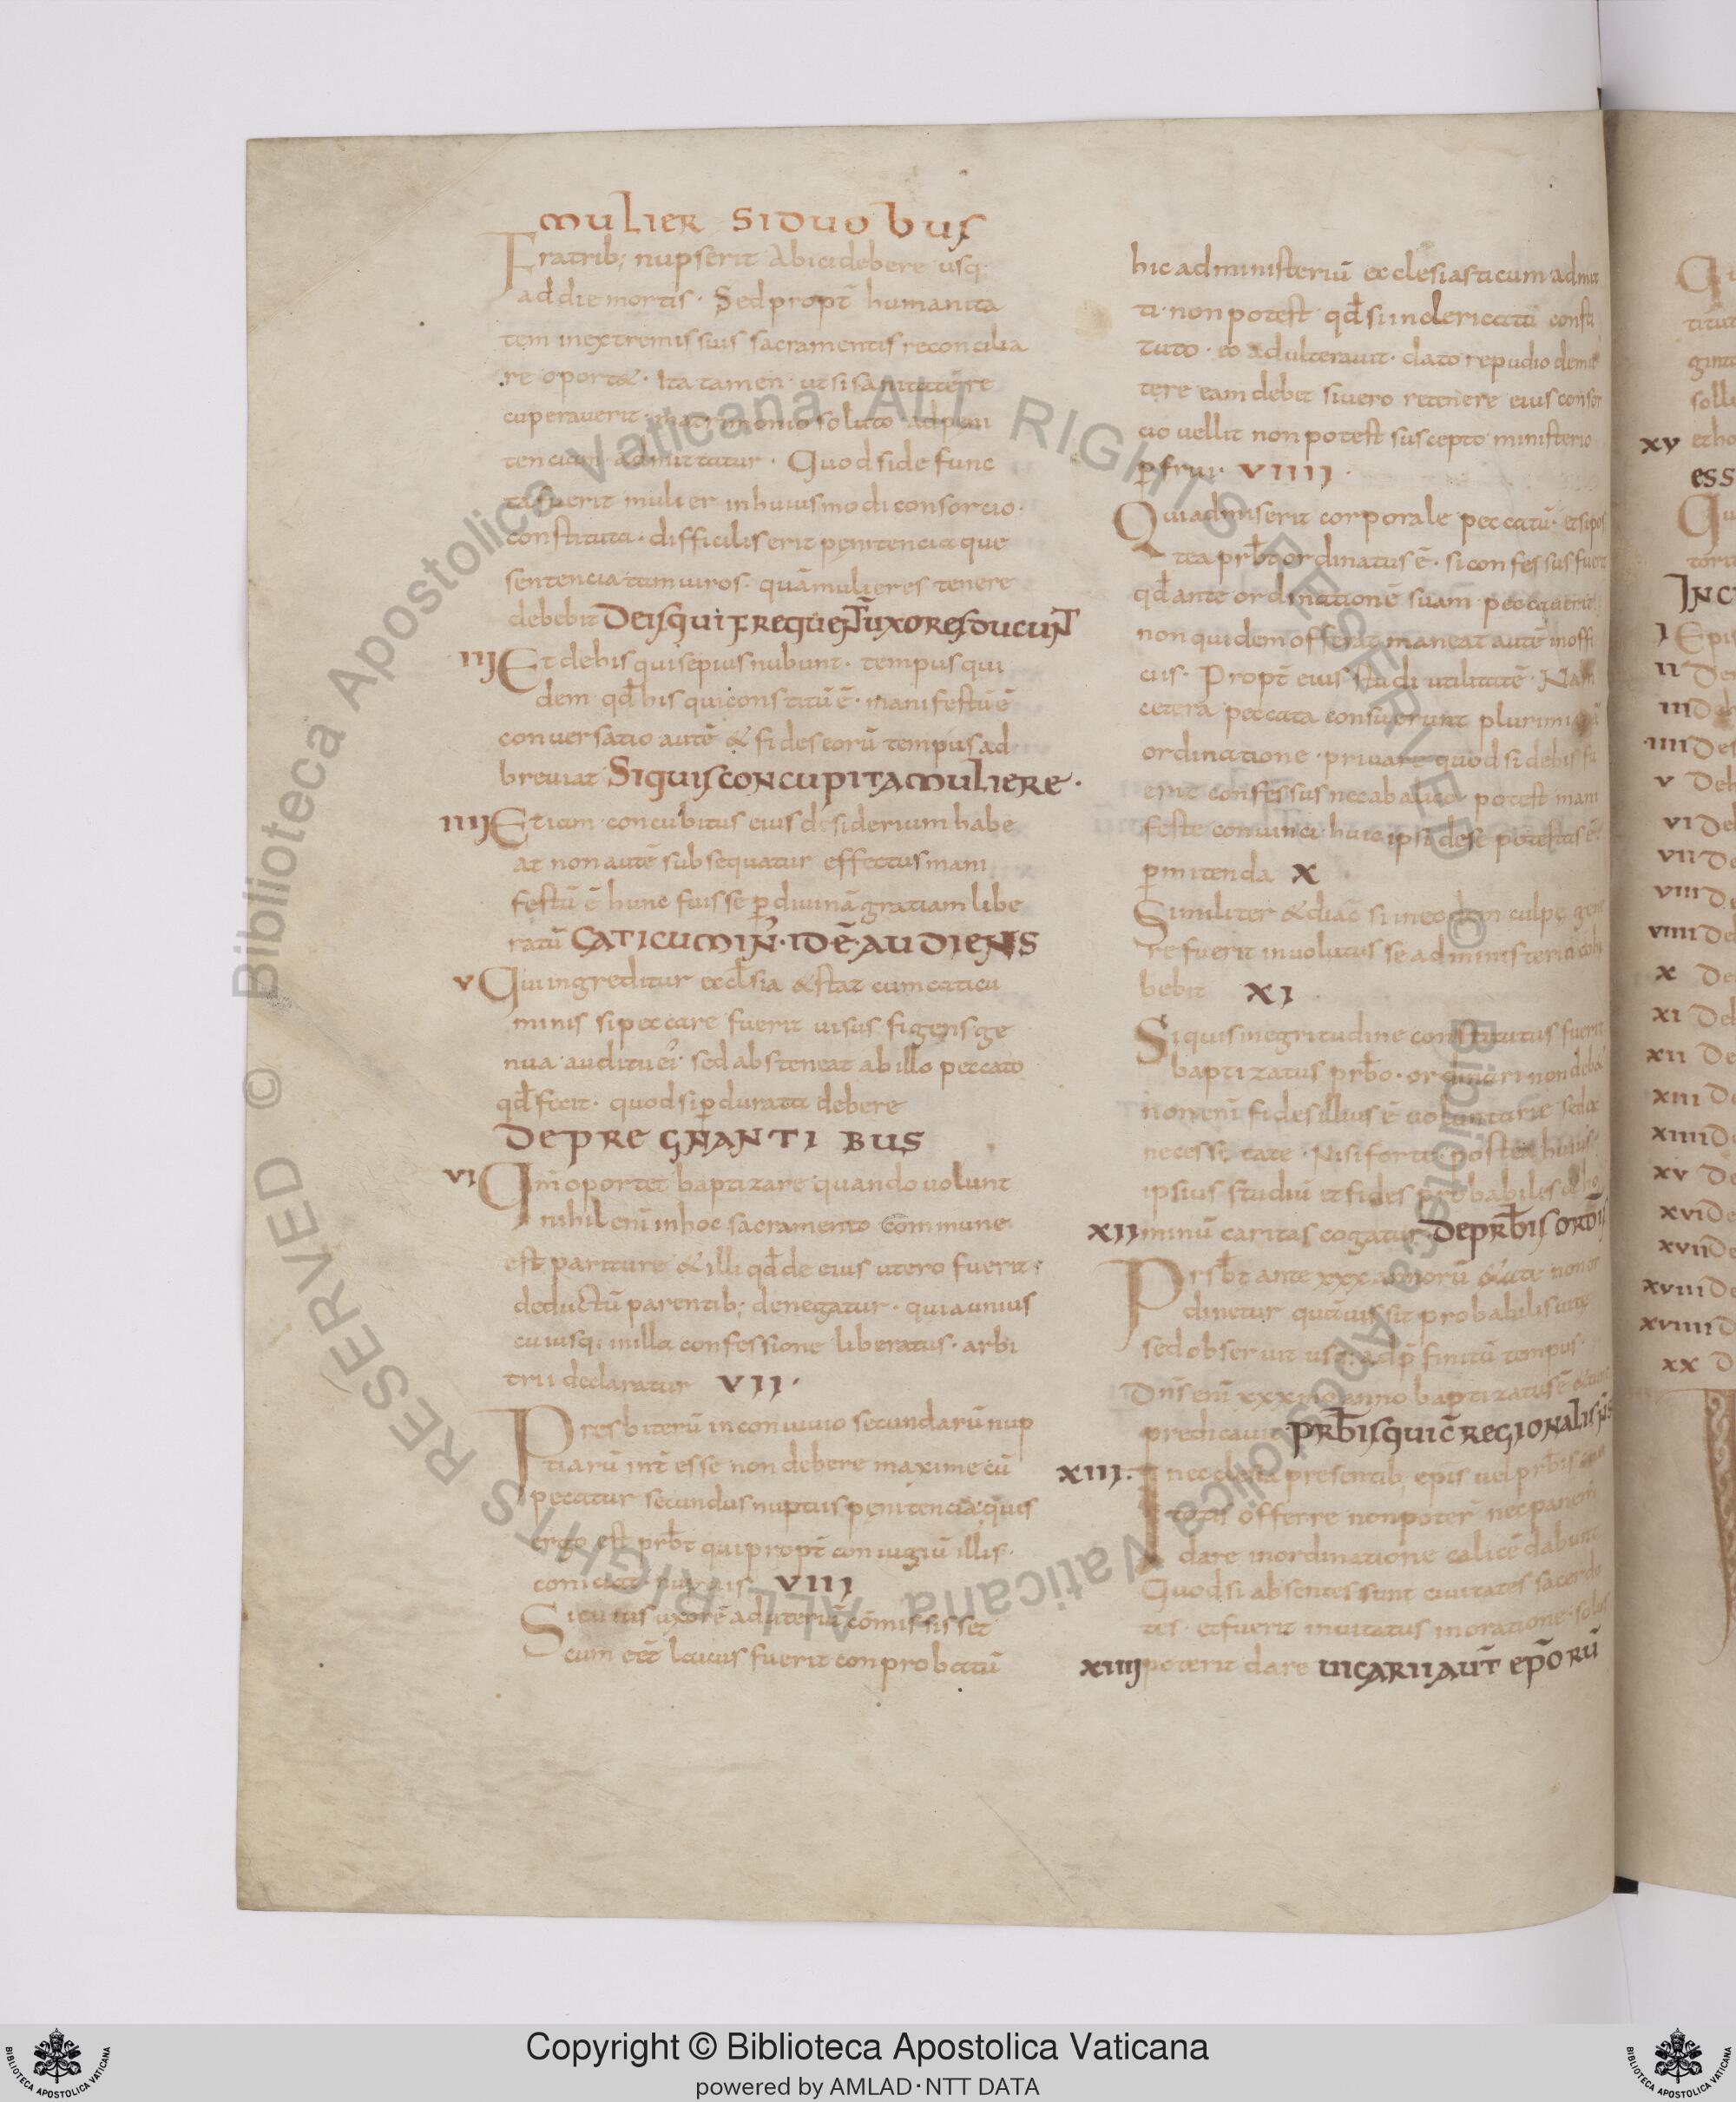 mulier siduobus
Fratrib; nupserit Abicidebere usq;
addie mortis · Sedpropt̄ humanita
tem inextremis suis sacramentis reconcilia
re oport& · Ita tamen ut si sanitatē re
cuperauerit · matrimonio soluto adpeni
tenciam admittatur · Quodside func
ta fuerit mulier inhuiusmodi consorcio ·
constituta · difficilis erit penitencia que
sentencia tam uiros · quā mulieres tenere
debebit Deis qui frequent̄ uxores ducunt
III Et debis qui sepius nubunt · tempus qui
dem qd̄ his qui constitū ē · manifestū ē
conuersatio autē & fides eorū tempus ad
breuiat Siquis concupita muliere ·
IIII Etiam concubitus eius desiderium habe
at non autē subsequatur effectus mani
festū ē hunc fuisse p̱ diuinā gratiam libe
ratū Caticumin̄ · idē · audiens
V Qui ingreditur ecclesia & stat cum caticu
minis si peccare fuerit uisus figens ge
nua auditu ei · sed absteneat ab illo peccato
qd̄ fecit · quod si p̱ durata debere
De pregnantibus
VI Qm̄ oportet baptizare quando uolunt
nihil enī inhoc sacramento commune
est pariture & illi qd̄ de eius utero fuerit ·
deductū parentib; denegatur · quia unius
cuiusq; in illa confessione liberatus · arbi
trii declaratur VII ·
Presbiterū in conuiuio secundarū nup
tiarū int̄ esse non debere maxime cū
pecatur secundus nuptiis penitencia quis
ergo est prb̄t qui propt̄ coniugiū illis ·
VIII
Si cuius uxorē adulteriū cōmississet
cum eēt laicus fuerit conprobatū
hic administeriū ecclesiasticum admit
ti · non potest qd̄ si in clericatu constū
tuto · eo adulterauit · dato repudio demit
tere eam debet si uero retenere eius consor
cio uellit non potest suscepto ministerio
p̱ frui · VIIII ·
Qui admiserit corporale peccatū · et si pos
tea prb̄t ordinatus ē · si confessus fuerit
qd̄ ante ordinationē suam peccauerit
non quidem offerat maneat autē in offi
ciis · Propt̄ eius studi utilitatē · Nam
cetera peccata consuerunt plurimi
ordinatione · priuare quod si debis fu
erit confessus nec ab alico potest mani
feste conuinci huic ipsi de se potestas ē
p̱ mitenda X
Similiter & diac̄ si in eodem culpe gene
re fuerit inuolutus se administerio cohi
bebit XI
Si quis inegritudine constitutus fuerit
baptizatus prb̄o · ordinari non deb&
non enī fides illius ē uoluntarie sed ex
necessitate · Nisi forte postea huius
ipsius studiū et fides probabilis & ho
XII minū caritas cogatur Deprb̄is ordis
Prsb̄t ante xxx annorū &ate non or
dinetur quāuis sit probabilis uite
sed obseruit usq; ad p̱finitū tempus ·
Dn̄s enī xxxmo anno baptizatus ē
predicauit prb̄is qui c̄ regionalis
XIII · In ecclesia presentib; ep̄is uel prb̄is
offerre non poter̄ nec panem
dare in ordinatione calicē dabunt
Quod si absentes sunt ciuitates sacerdo
tes · et fuerit inuitatus in oratione · solus
XIIII poterit dare uicarii aut̄ ep̄orū
XV
I Epis
II
III
IIII
V
VI
VII
VIII
VIIII
X
XI
XII
XIII
XIIII
XV
XVI
XVII
XVIII
XVIIII
XX
© Biblioteca Apostolica Vaticana ALL RIGHTS RESERVED
© Biblioteca Apostolica Vaticana ALL RIGHTS RESERVED
Copyright © Biblioteca Apostolica Vaticana
powered by AMLAD · NTT DATA
BIBLIOTECA APOSTOLICA VATICANA
BIBLIOTECA APOSTOLICA VATICANA